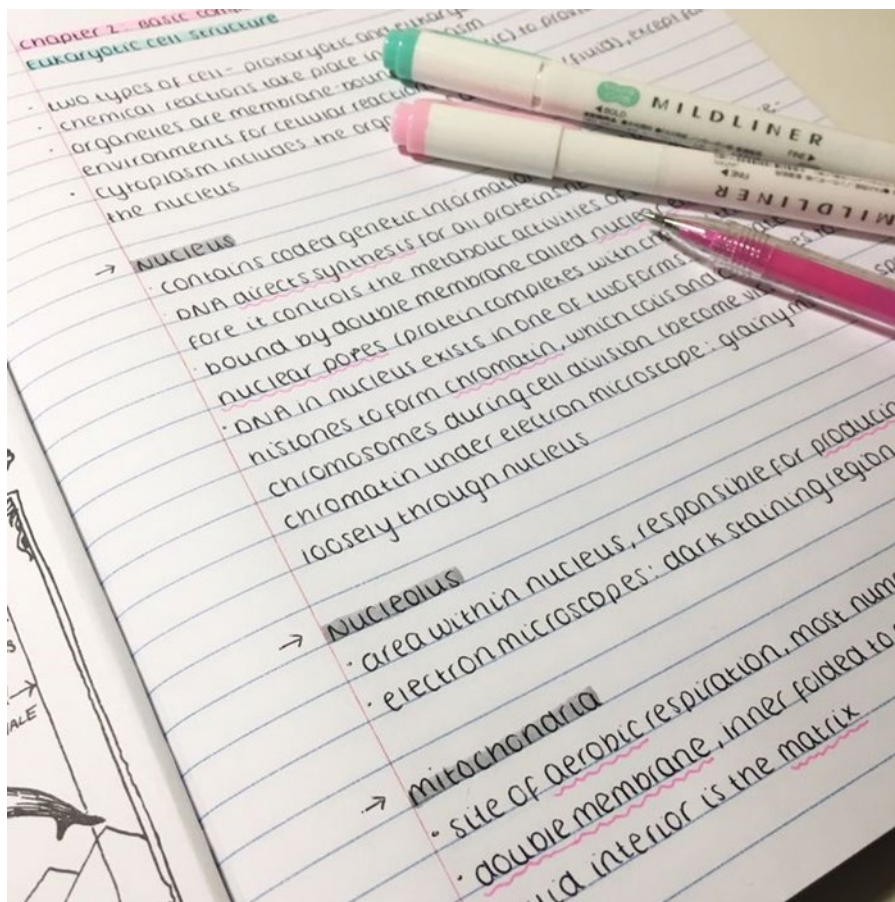 Chapter 2: Basic comp
Eukaryotic cell structure
· two types of cell - prokaryotic and eukaryo
· chemical reactions take place in
· organelles are membrane-bound tic) to provi
environments for cellular reaction
· cytoplasm includes the orga fluid), except fo
the nucleus
→ Nucleus
· contains coded genetic information
· DNA directs synthesis for all proteins ne
fore it controls the metabolic activities of
· bound by double membrane called nuclear
nuclear pores (protein complexes with
· DNA in nucleus exists in one of two forms
histones to form chromatin, which coils and
chromosomes during cell division (become vi
chromatin under electron microscope: grainy m
loosely through nucleus
→ Nucleolus
· area within nucleus, responsible for producin
· electron microscopes: dark staining region
→ mitochondria
· site of aerobic respiration, most num
· double membrane, inner folded to
interior is the matrix
MILDLINER
◄BOLD
FINE►
MILDLINER
FINE►
ALE